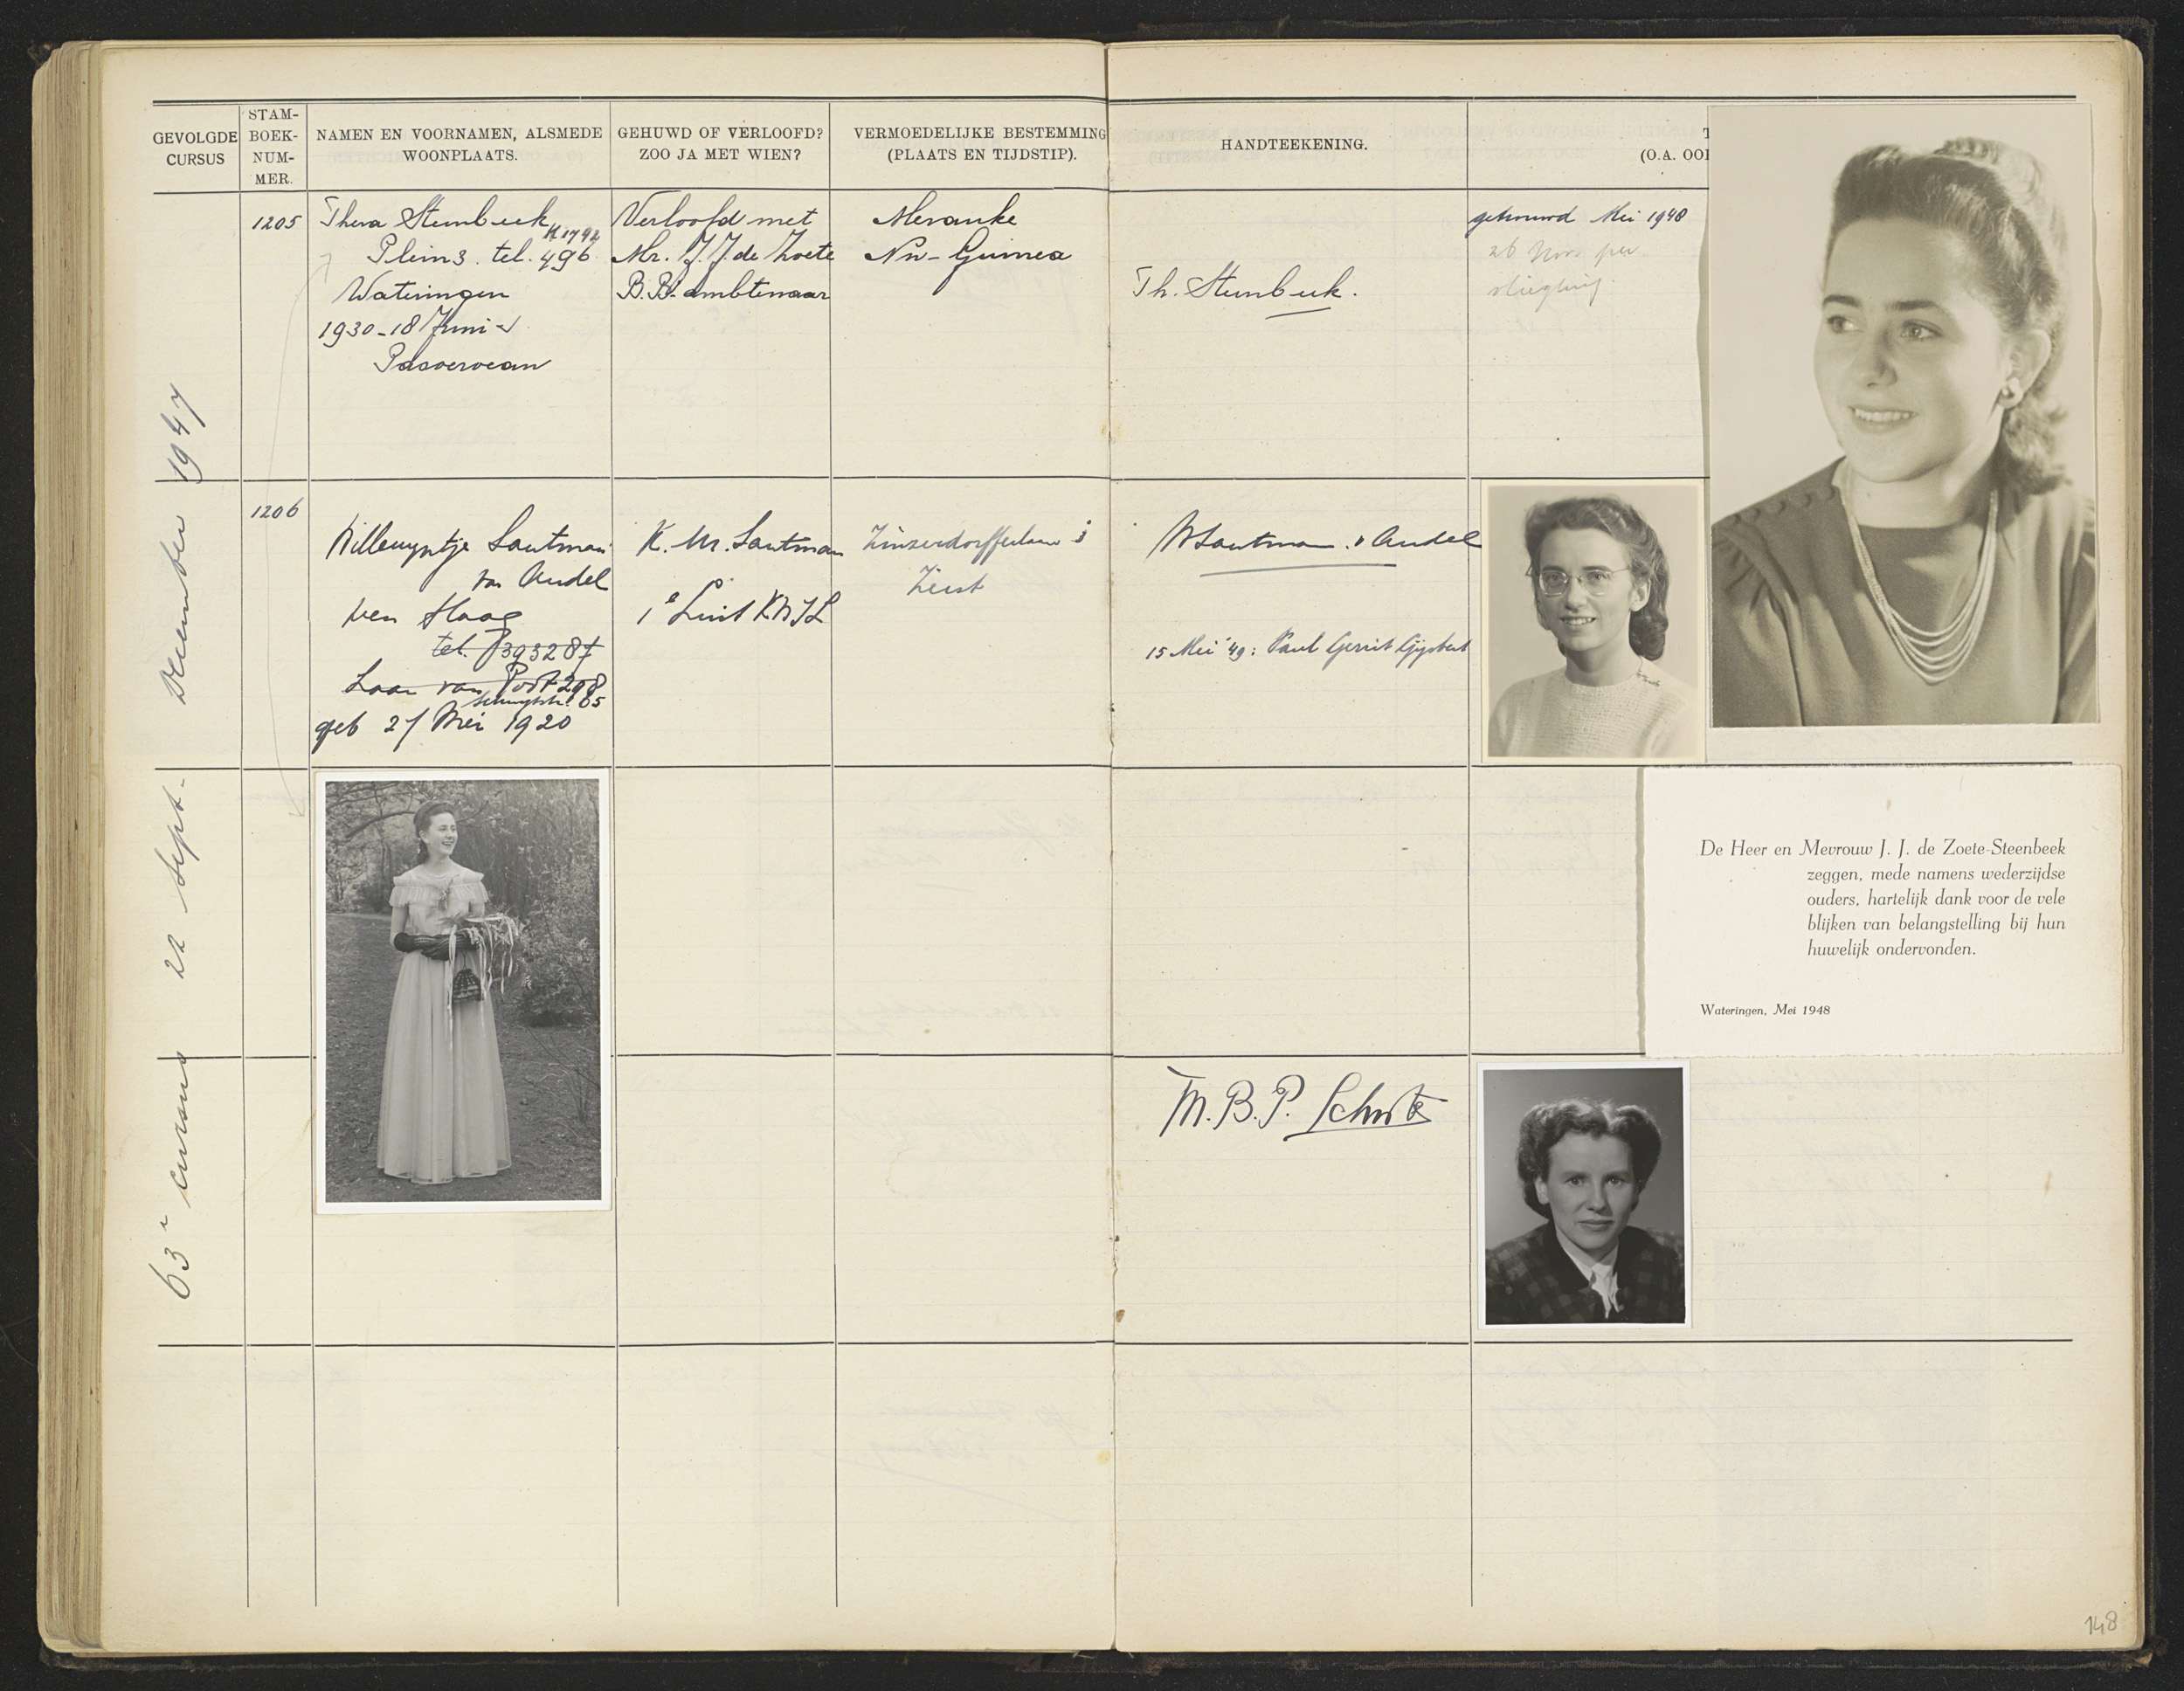 GEVOLGDE CURSUS
STAM-BOEK-NUM-MER.
NAMEN EN VOORNAMEN, ALSMEDE WOONPLAATS.
GEHUWD OF VERLOOFD? ZOO JA MET WIEN?
VERMOEDELIJKE BESTEMMING (PLAATS EN TIJDSTIP).
HANDTEEKENING.
(O.A. OOI
63e cursus 22 Sept. - December 1947
1205
Thera Steenbeek
K 1792
Plein 3. tel. 496
Wateringen
1930-18 Juni
Pasoeroean
Verloofd met
Mr. J. J. de Zoete
B.B. ambtenaar
Merauke
Nw-Guinea
Th. Steenbeek.
getrouwd Mei 1948
26 Nov. per
vliegtuig.
1206
Willemyntje Lautman
van Andel
Den Haag
tel. 393287
Laan van Poot 298
85
geb 27 Mei 1920
K. M. Lautman
1e Luit KNIL
Zinzendorfflaan
Zeist
WLautman. v Andel
15 Mei '49: Paul Gerrit Gijsbert
De Heer en Mevrouw J. J. de Zoete-Steenbeek
zeggen, mede namens wederzijdse
ouders, hartelijk dank voor de vele
blijken van belangstelling bij hun
huwelijk ondervonden.
Wateringen, Mei 1948
M. B. P.
148